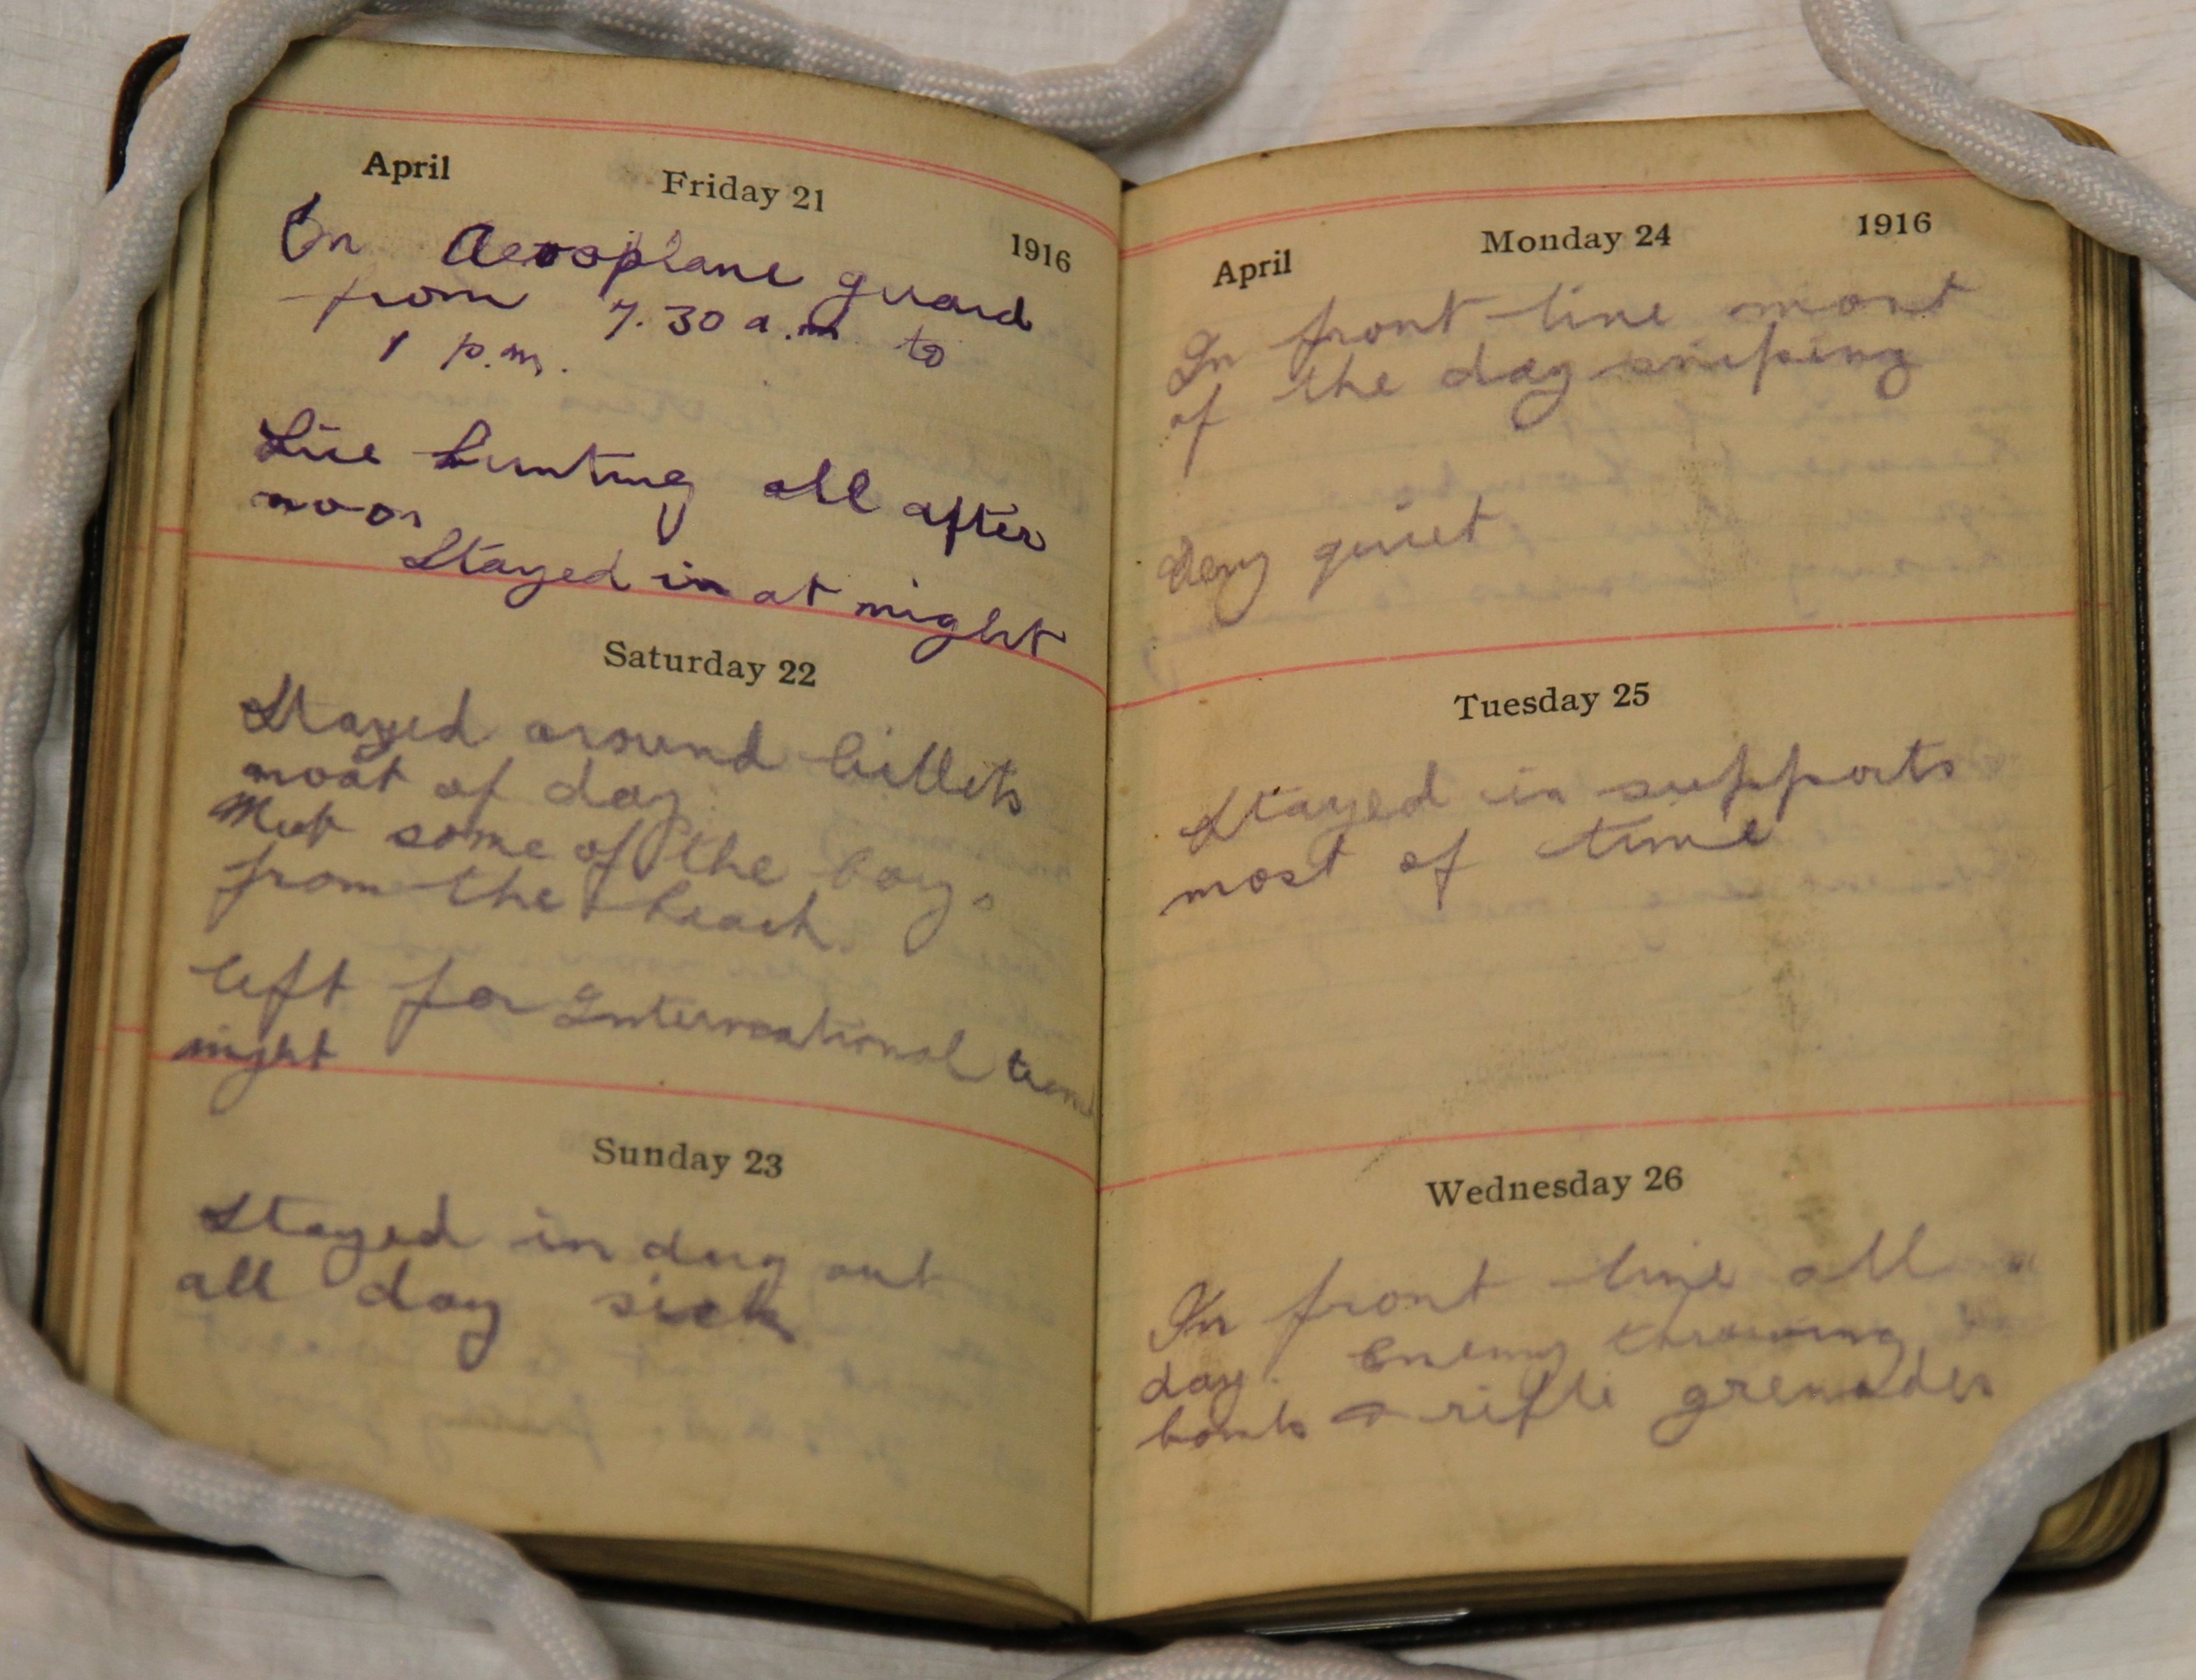 April Friday 21 1916
On Aeroplane guard
from 7.30 a.m. to
1 p.m.
Lice hunting all after
noon
Stayed in at night
Saturday 22
Stayed around billets
most of day.
Met some of the boys
from the
left for International
night
Sunday 23
Stayed in dug out
all day sick
April Monday 24 1916
In front line most
of the day sniping
Very quiet
Tuesday 25
Stayed in supports
most of time
Wednesday 26
In front line all
day. Enemy throwing
bombs & rifle grenades